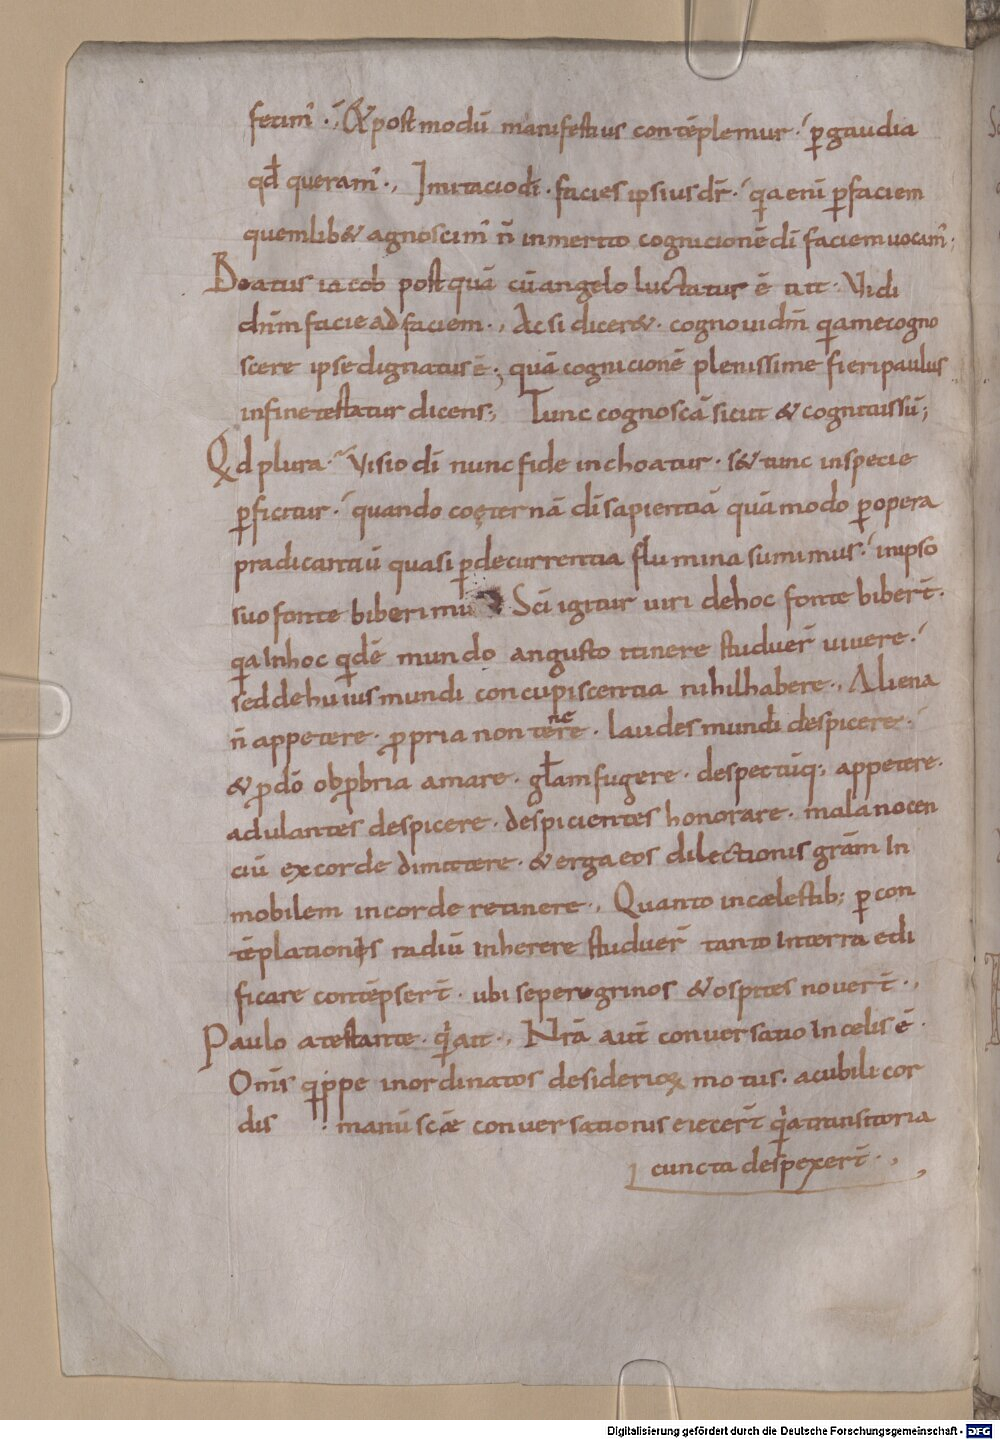 fecim᷒ ·,́ & post modū manifestius contēplemur ·́ ꝑ gaudia
qđ queram᷒ ·, Imitacio dī · facies ipsius dr̄ ·́ qa enī ꝑ faciem
quemlib& agnoscim᷒ n̄ inmerito cognicionē dī faciem uocam᷒;
Beatus iacob post quā cū angelo luctatur ē ait · Vidi
dn̄m facie ad faciem ·, Ac si dicer& · cognoui dn̄m qa me cogno
scere ipse dignatus ē ·; quā cognicionē plenissime fieri paulus
in fine testatur dicens; Tunc cognoscā sicut & cognitus sū;
Qd plura ·́ Visio dī nunc fide inchoatur · s& tunc in specie
ꝑficitur ·́ quando coęternā dī sapientiā quā modo ꝑ opera
pradicantiū quasi ꝑ decurrentia flumina sumimus ·́ in ipso
suo fonte biberimu Scī igitur uiri de hoc fonte biber̄t ·
qa In hoc qdē mundo angusto itinere studuer̄ uiuere ·́
sed de huius mundi concupiscentia nihil habere ·, Aliena
n̄ appetere · ꝓpria non tenere · laudes mundi despicere ·́
& ꝓ dō obꝓbria amare · gl̄am fugere · despectūq; appetere ·
adulantes despicere · despicientes honorare · mala nocen
ciū ex corde dimittere · & erga eos dilectionis grām In
mobilem in corde retinere ·, Quanto in cælestib; ꝑ con
tēplationis radiū Inherere studuer̄ tanto In terra edi
ficare contēpser̄t · ubi se peregrinos & ospites nouer̄t ·,
Paulo atestante · qi ait ·, Nr̄a aut̄ conuersatio In celis ē ·
Om̄s qippe inordinatos desiderioꝝ motus · a cubili cor
dis · manū scæ conuersationis eiecer̄t qia transitoria
cuncta despexer̄t ·,
Digitalisierung gefördert durch die Deutsche Forschungsgemeinschaft - DFG